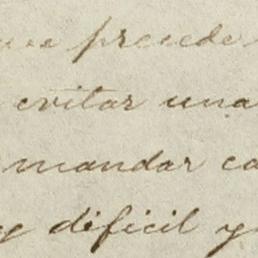 precede
evitar una
mandar
dificil y